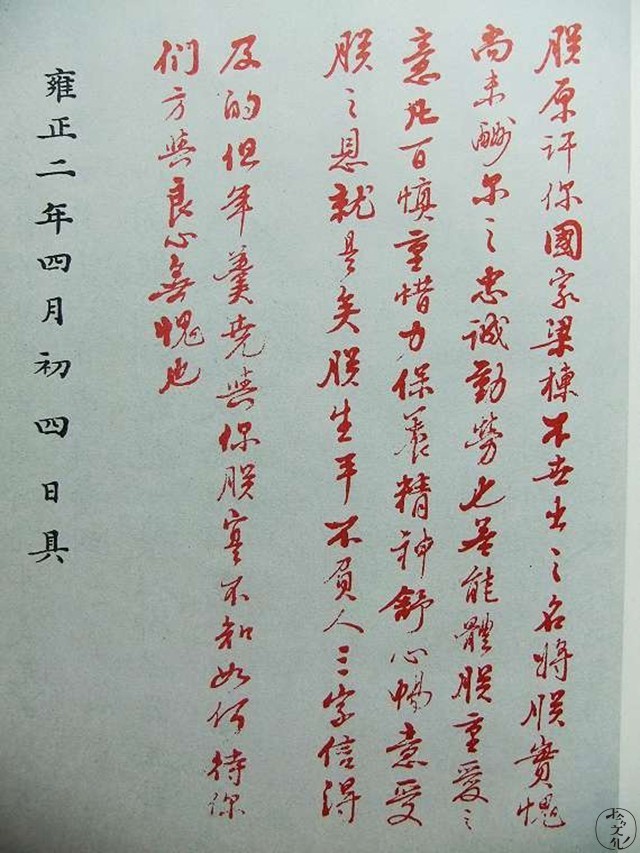 朕原许你國家梁棟不世出之名將朕實愧
尚未酬尔之忠诚勤勞也若能體朕重愛之
意凡百慎重惜力保養精神舒心暢意受
朕之恩就是矣朕生平不負人三字信得
及的但年羹尭與保朕實不知如何待你
们方與良心無愧也
雍正二年四月初四日具